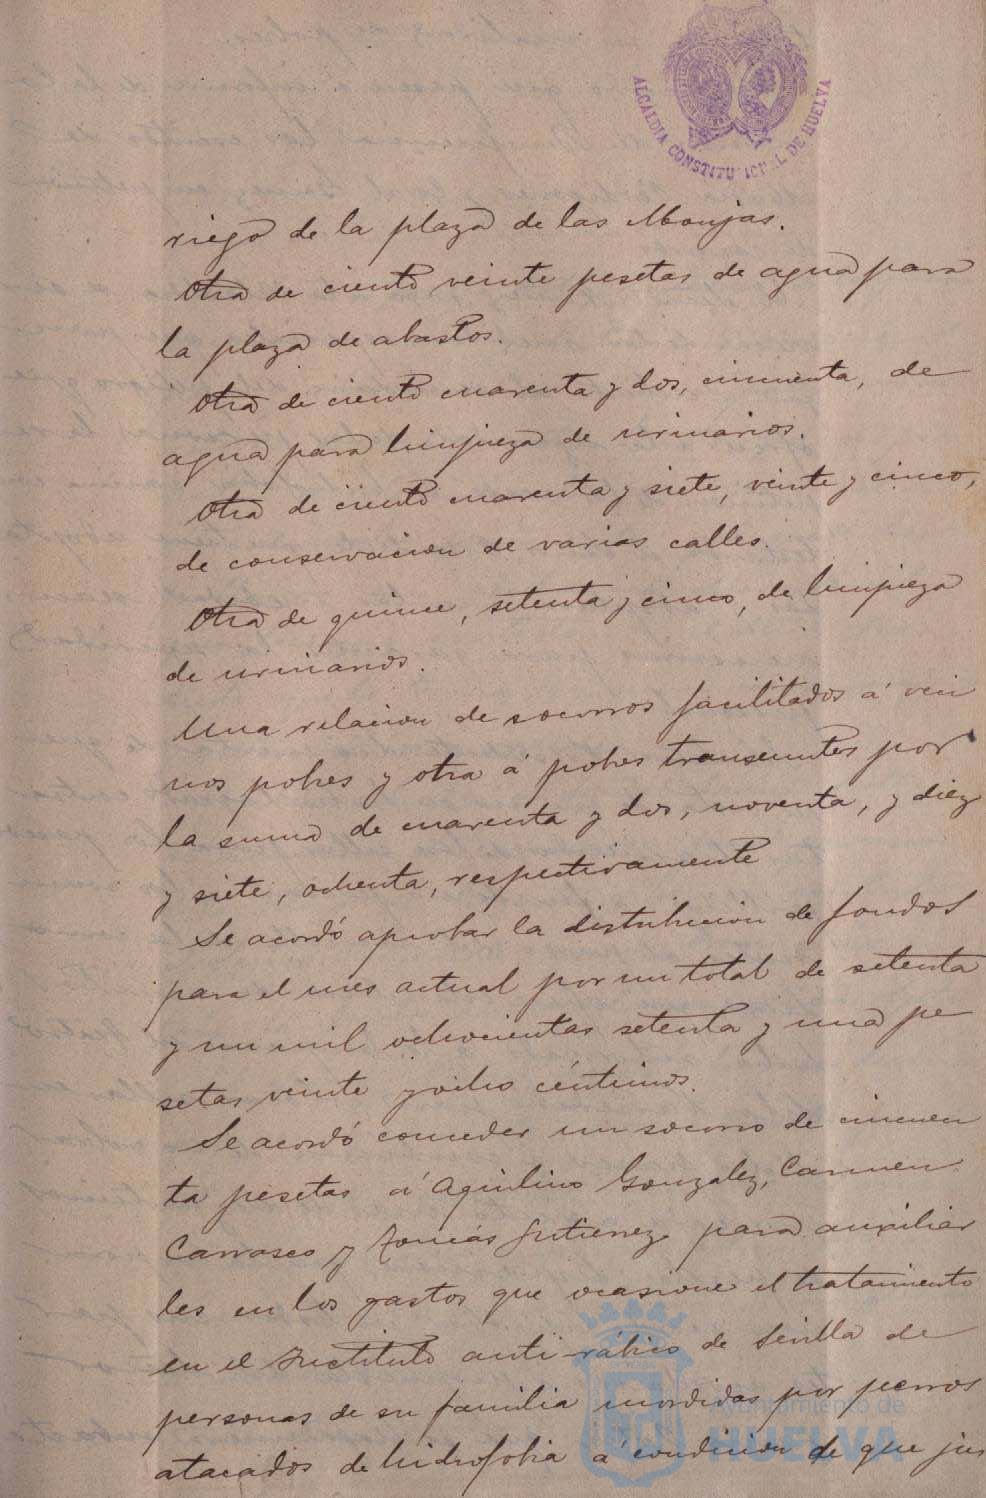 ALCALDIA CONSTITUCIONAL DE HUELVA
riego de la plaza de las Monjas.
Otra de ciento veinte pesetas de agua para
la plaza de abastos.
Otra de ciento cuarenta y dos, cincuenta, de
agua para limpieza de urinarios.
Otra de ciento cuarenta y siete, veinte y cinco,
de conservacion de varias calles.
Otra de quince, setenta y cinco, de limpieza
de urinarios.
Una relacion de socorros facilitados á veci
nos pobres y otra á pobres transeuntes por
la suma de cuarenta y dos, noventa, y diez
y siete, ochenta, respectivamente
Se acordó aprobar la distribucion de fondos
para el mes actual por un total de setenta
y un mil ochocientas setenta y una pe
setas veinte y ocho céntimos.
Se acordó conceder un socorro de cincuen
ta pesetas á Aquilino Gonzalez, Carmen
Carrasco y Tomás Gutierrez para auxiliar
les en los gastos que ocasione el tratamiento
en el Instituto anti-rábico de Sevilla de
personas de su familia mordidas por perros
atacados de hidrofobia á condicion de que jus
Ayuntamiento de
HUELVA